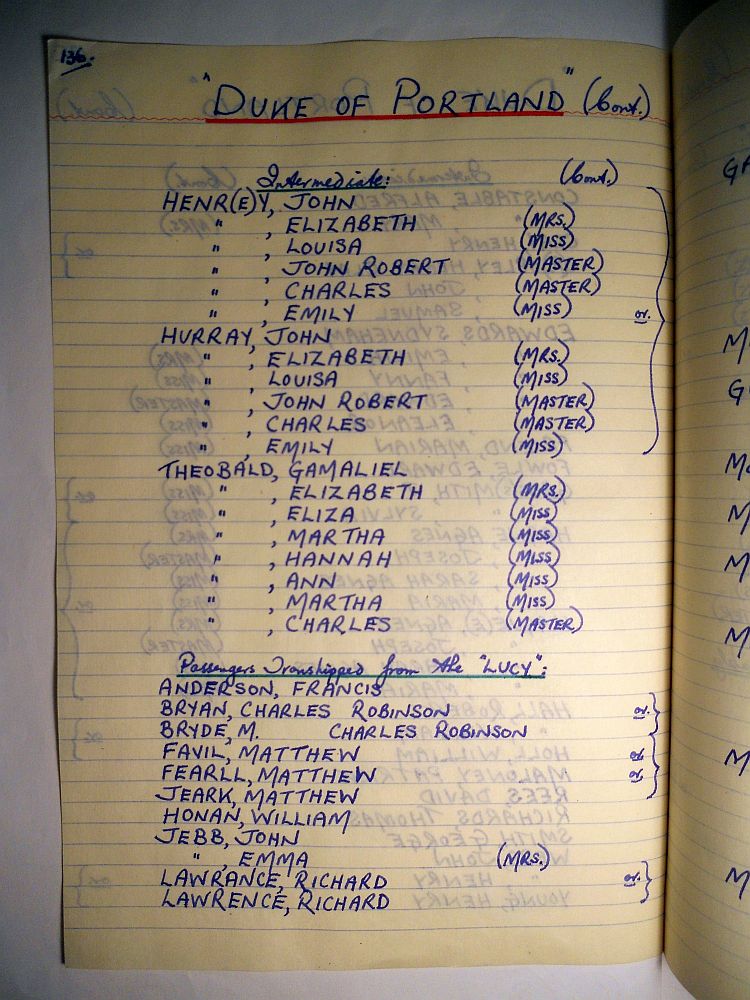 136.
"DUKE OF PORTLAND" (Cont.)
Intermediate: (Cont.)
HENR(E)Y, JOHN
" , ELIZABETH (MRS.)
" , LOUISA (MISS)
" , JOHN ROBERT (MASTER)
" , CHARLES (MASTER)
" , EMILY (MISS) or.
HURRAY, JOHN
" , ELIZABETH (MRS.)
" , LOUISA (MISS)
" , JOHN ROBERT (MASTER)
" , CHARLES (MASTER)
" , EMILY (MISS)
THEOBALD, GAMALIEL
" , ELIZABETH (MRS.)
" , ELIZA (MISS)
" , MARTHA (MISS)
" , HANNAH (MISS)
" , ANN (MISS)
" , MARTHA (MISS)
" , CHARLES (MASTER)
Passengers Transhipped from the "LUCY":
ANDERSON, FRANCIS
BRYAN, CHARLES ROBINSON or.
BRYDE, M. CHARLES ROBINSON
FAVIL, MATTHEW or.
FEARLL, MATTHEW or.
JEARK, MATTHEW
HONAN, WILLIAM
JEBB, JOHN
" , EMMA (MRS.)
LAWRANCE, RICHARD or.
LAWRENCE, RICHARD